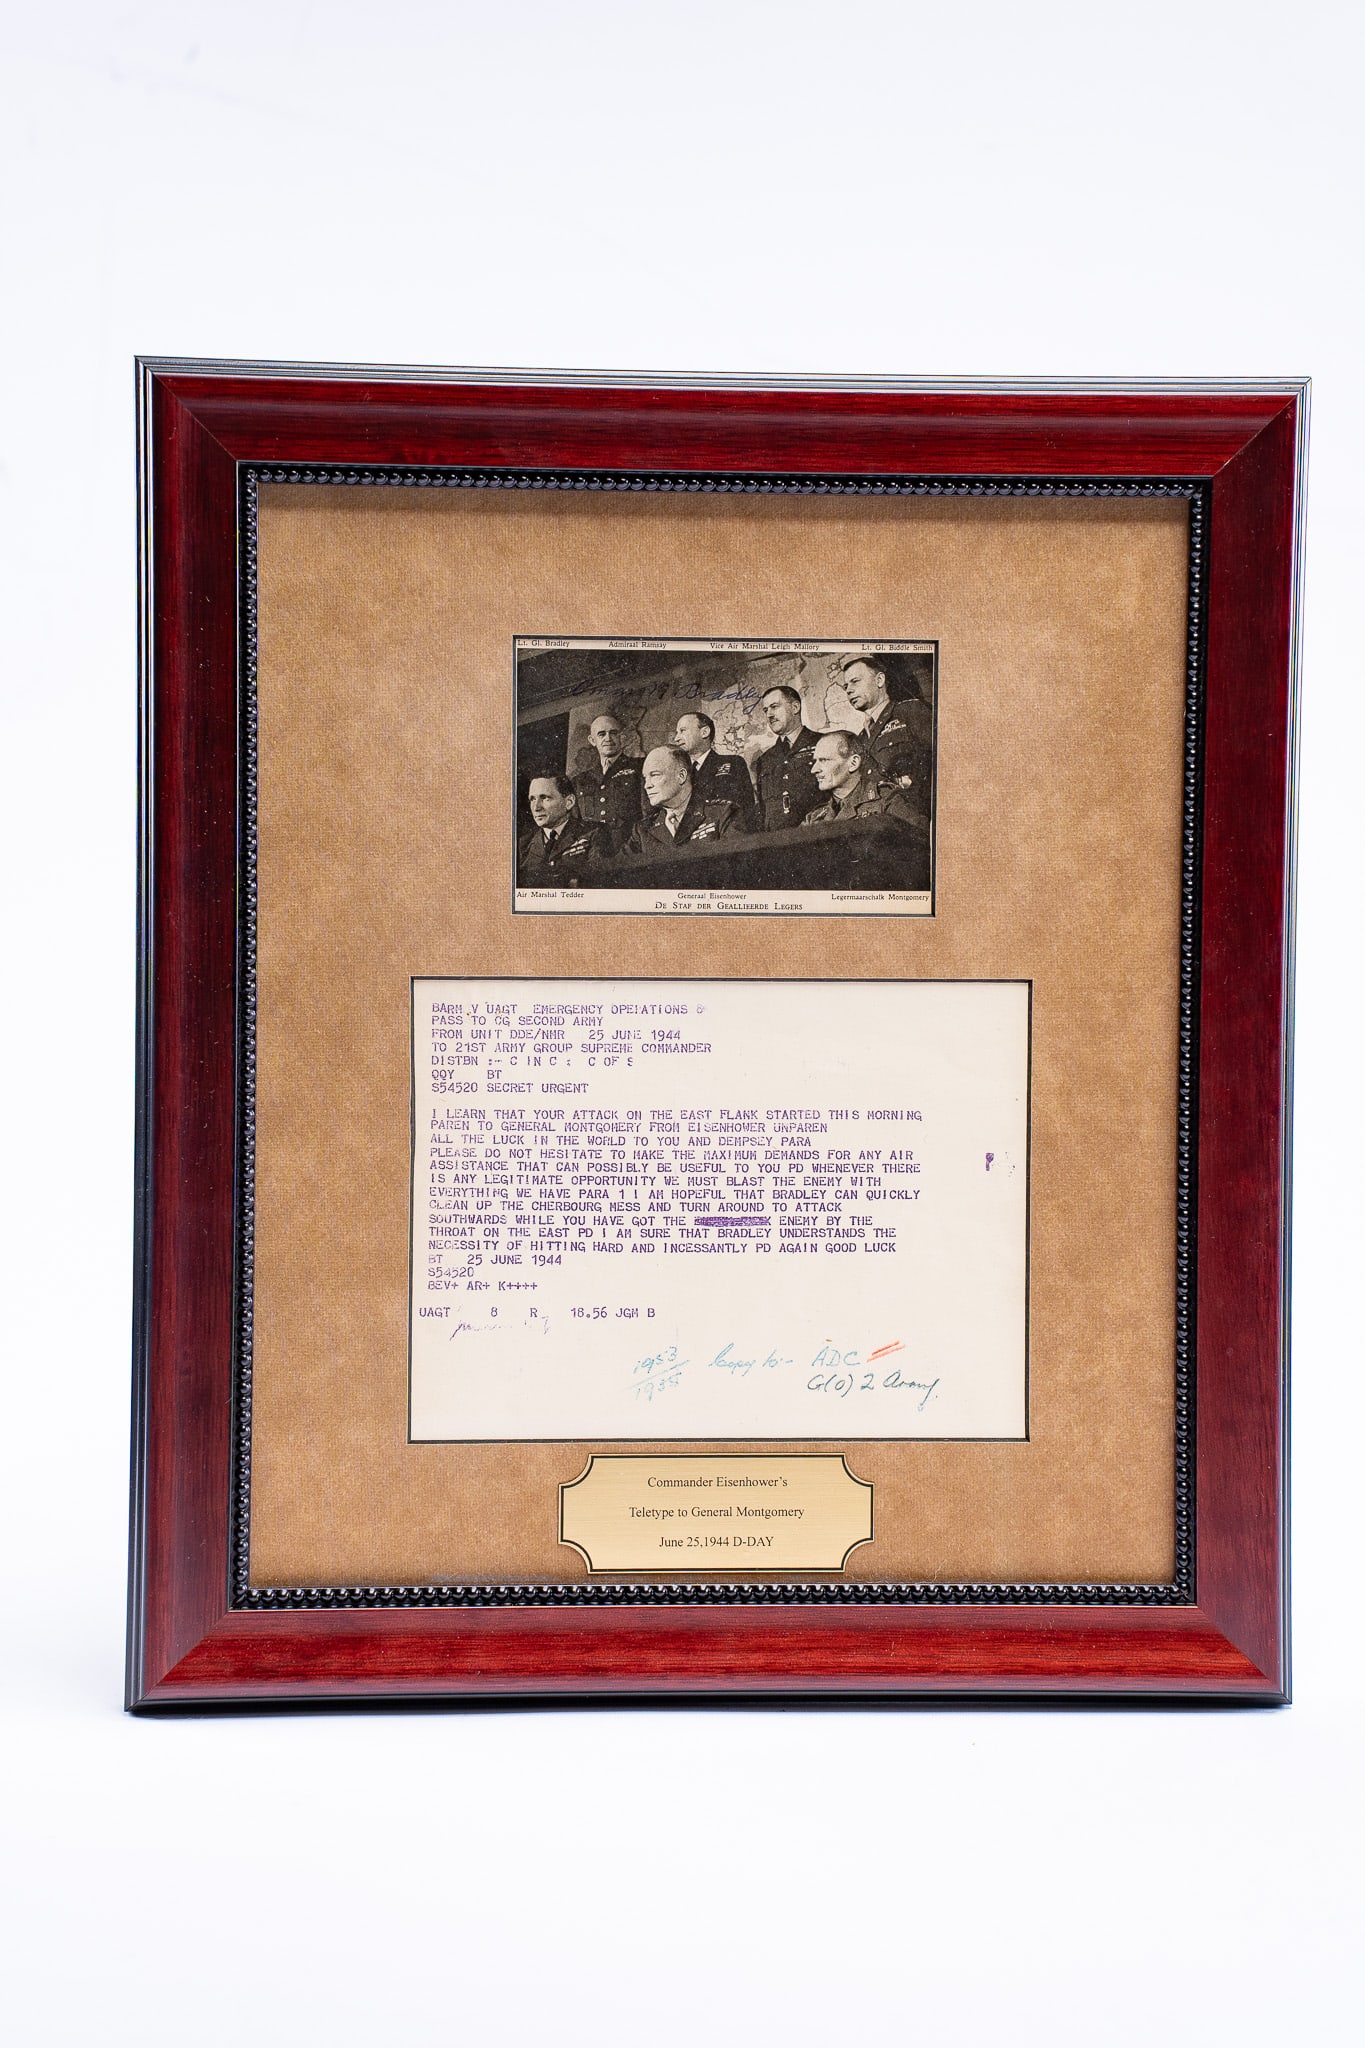 Lt. Gl. Bradley Admiraal Ramsay Vice Air Marshal Leigh Mallory Lt. Gl. Biddle Smith
Omar N Bradley
Air Marshal Tedder Generaal Eisenhower Legermaarschalk Montgomery
De Staf der Geallieerde Legers
BARM V UAGT EMERGENCY OPERATIONS &
PASS TO CG SECOND ARMY
FROM UNIT DDE/NMR 25 JUNE 1944
TO 21ST ARMY GROUP SUPREME COMMANDER
DISTBN :- C IN C : C OF S
QQY BT
S54520 SECRET URGENT
I LEARN THAT YOUR ATTACK ON THE EAST FLANK STARTED THIS MORNING
PAREN TO GENERAL MONTGOMERY FROM EISENHOWER UNPAREN
ALL THE LUCK IN THE WORLD TO YOU AND DEMPSEY PARA
PLEASE DO NOT HESITATE TO MAKE THE MAXIMUM DEMANDS FOR ANY AIR
ASSISTANCE THAT CAN POSSIBLY BE USEFUL TO YOU PD WHENEVER THERE
IS ANY LEGITIMATE OPPORTUNITY WE MUST BLAST THE ENEMY WITH
EVERYTHING WE HAVE PARA 1 I AM HOPEFUL THAT BRADLEY CAN QUICKLY
CLEAN UP THE CHERBOURG MESS AND TURN AROUND TO ATTACK
SOUTHWARDS WHILE YOU HAVE GOT THE ENEMY BY THE
THROAT ON THE EAST PD I AM SURE THAT BRADLEY UNDERSTANDS THE
NECESSITY OF HITTING HARD AND INCESSANTLY PD AGAIN GOOD LUCK
BT 25 JUNE 1944
S54520
BEV+ AR+ K++++
UAGT 8 R 18.56 JGM B
1953 Copy to:- ADC
1935 G(O) 2 Army.
Commander Eisenhower's
Teletype to General Montgomery
June 25,1944 D-DAY